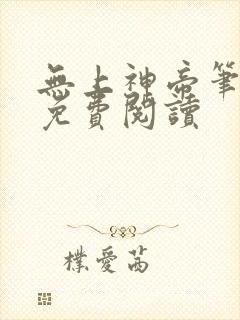 無上神帝筆
免費閱讀
樸愛茜